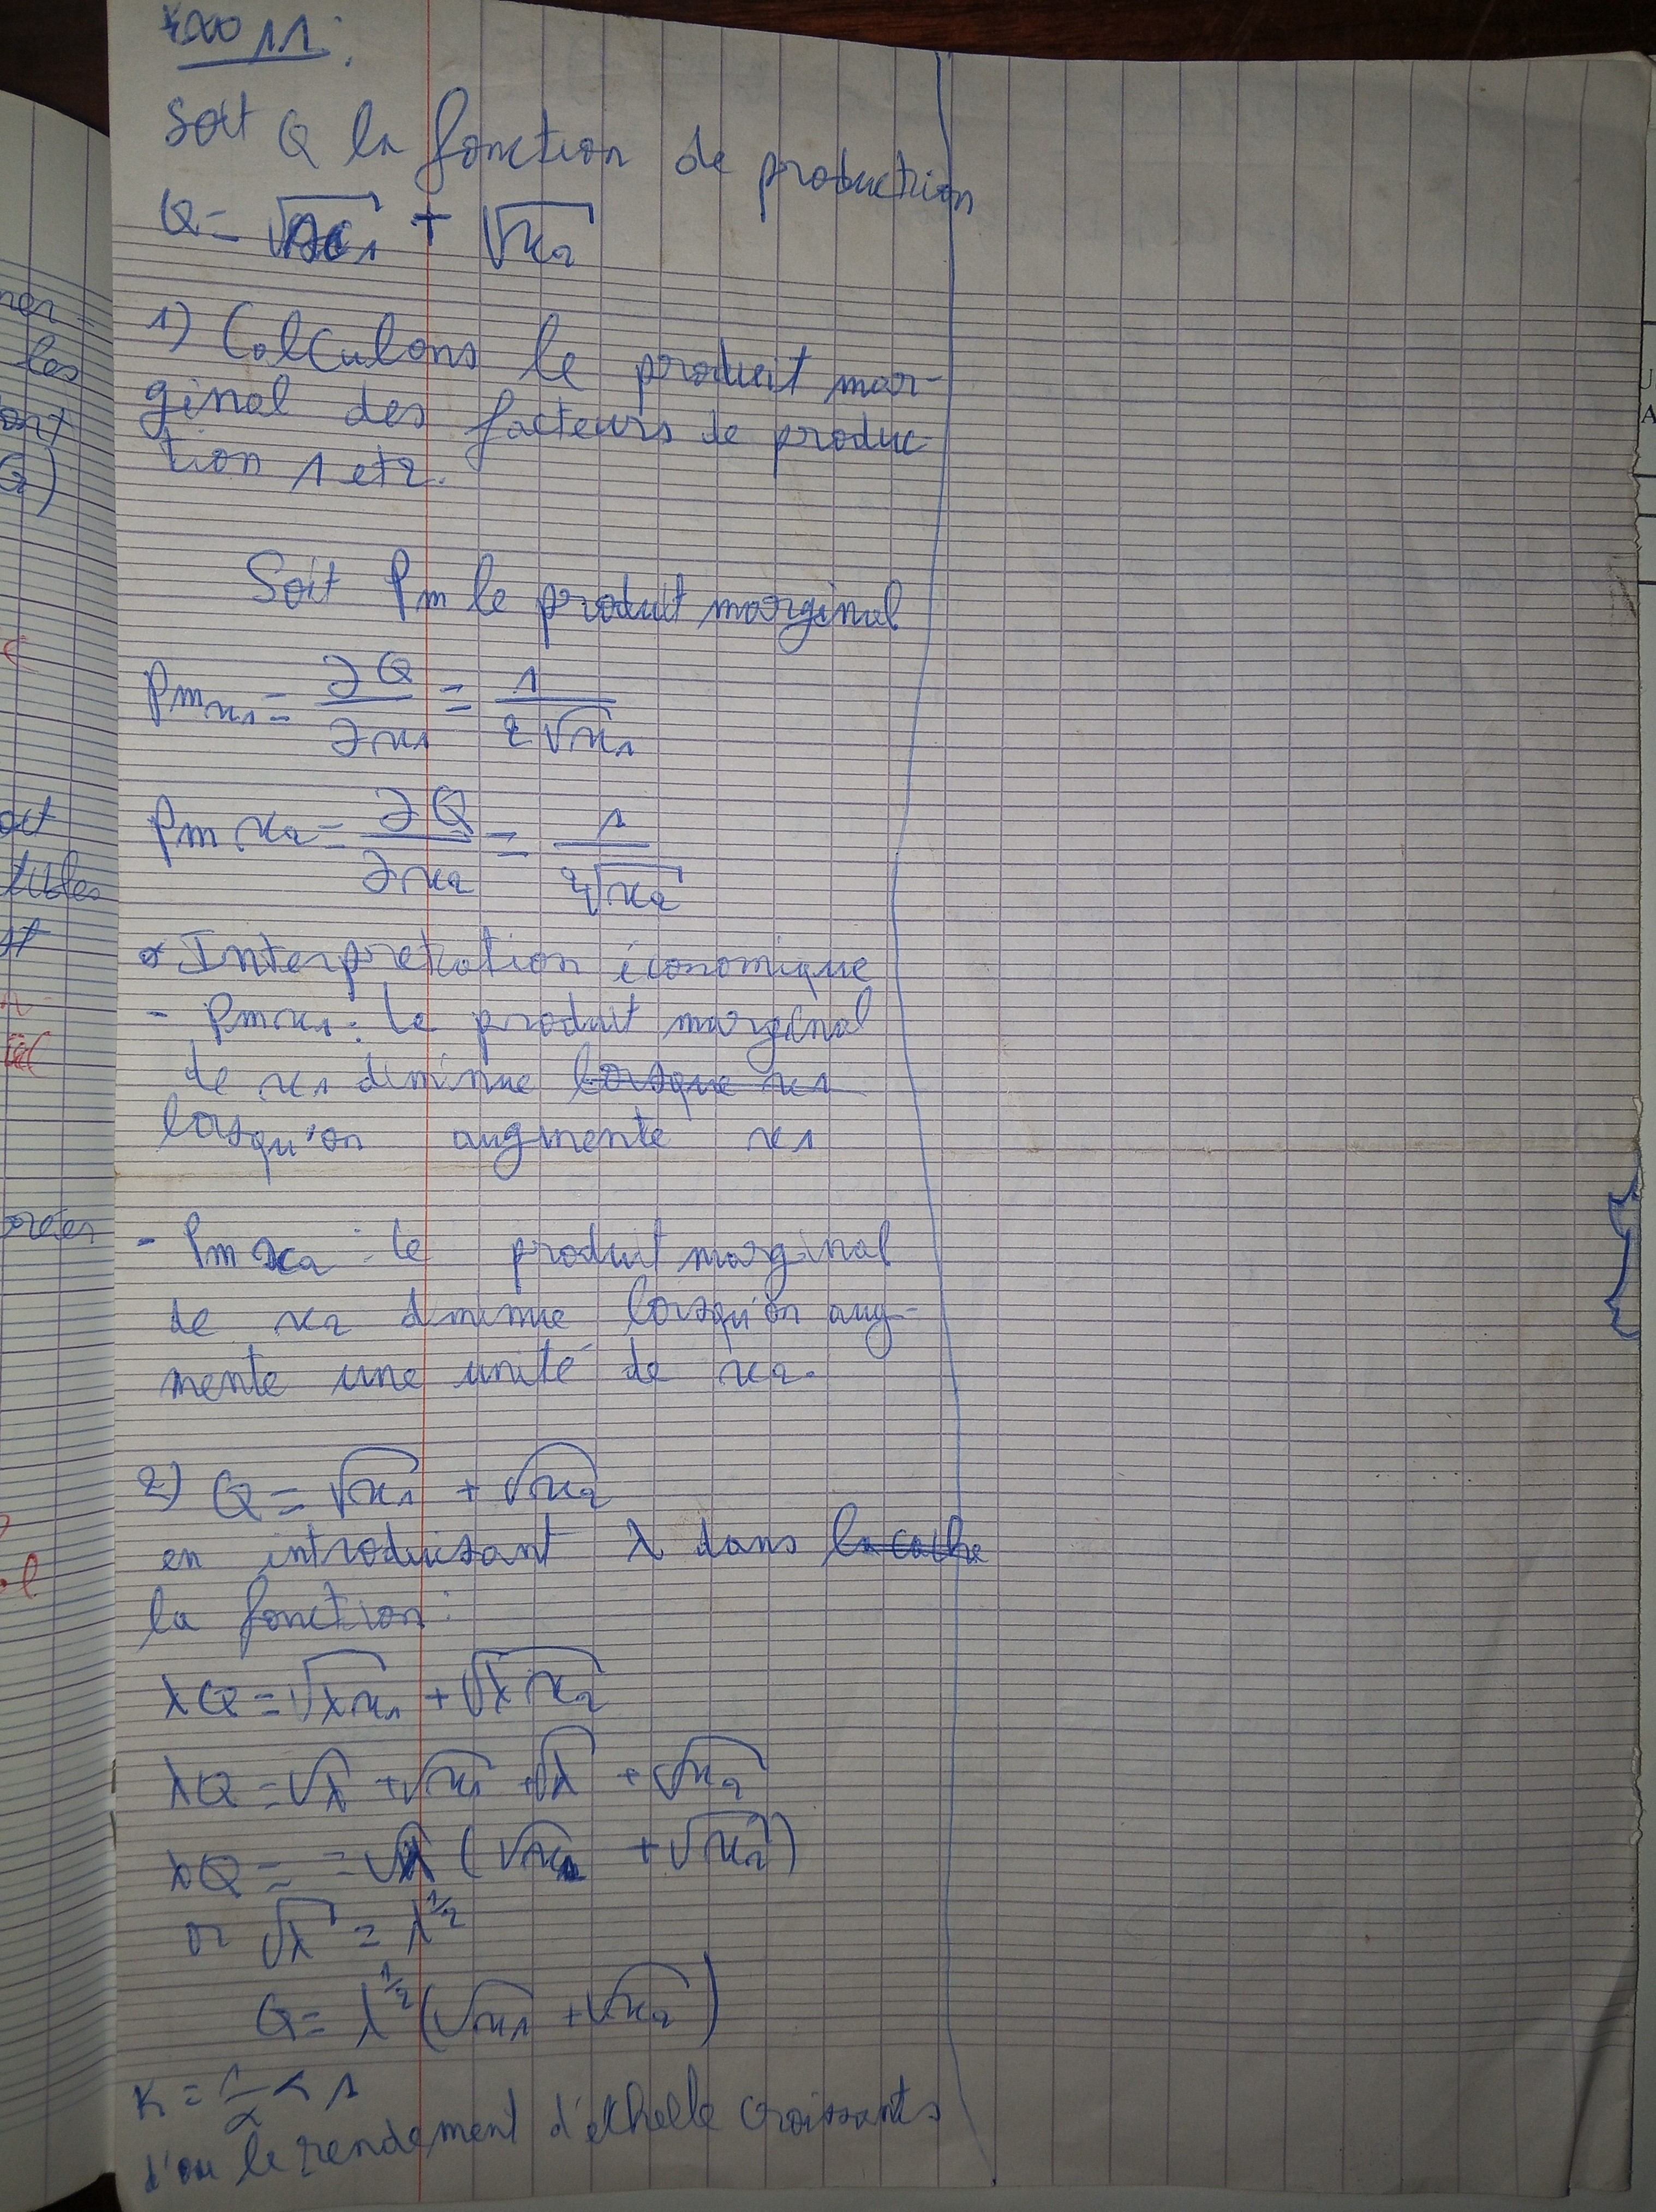 Exo 11:
Soit Q la fonction de production
Q = √x₁ + √x₂
1) Calculons le produit mar-
ginal des facteurs de produc-
tion 1 et 2.
Soit Pm le produit marginal
Pm x₁ = ∂Q/∂x₁ = 1/(2√x₁)
Pm x₂ = ∂Q/∂x₂ = 1/(2√x₂)
* Interpretation économique
- Pm x₁ : le produit marginal
de x₁ diminue lorsque x₁
lorsqu'on augmente x₁
- Pm x₂ : le produit marginal
de x₂ diminue lorsqu'on aug-
mente une unité de x₂.
2) Q = √x₁ + √x₂
en introduisant λ dans la
la fonction :
λQ = √λx₁ + √λx₂
λQ = √λ + √x₁ + √λ + √x₂
λQ = = √λ (√x₁ + √x₂)
or √λ = λ^1/2
Q = λ^1/2 (√x₁ + √x₂)
K = 1/2 < 1
d'ou le rendement d'échelle croissants
ner-
les
ont
Q)
tibles